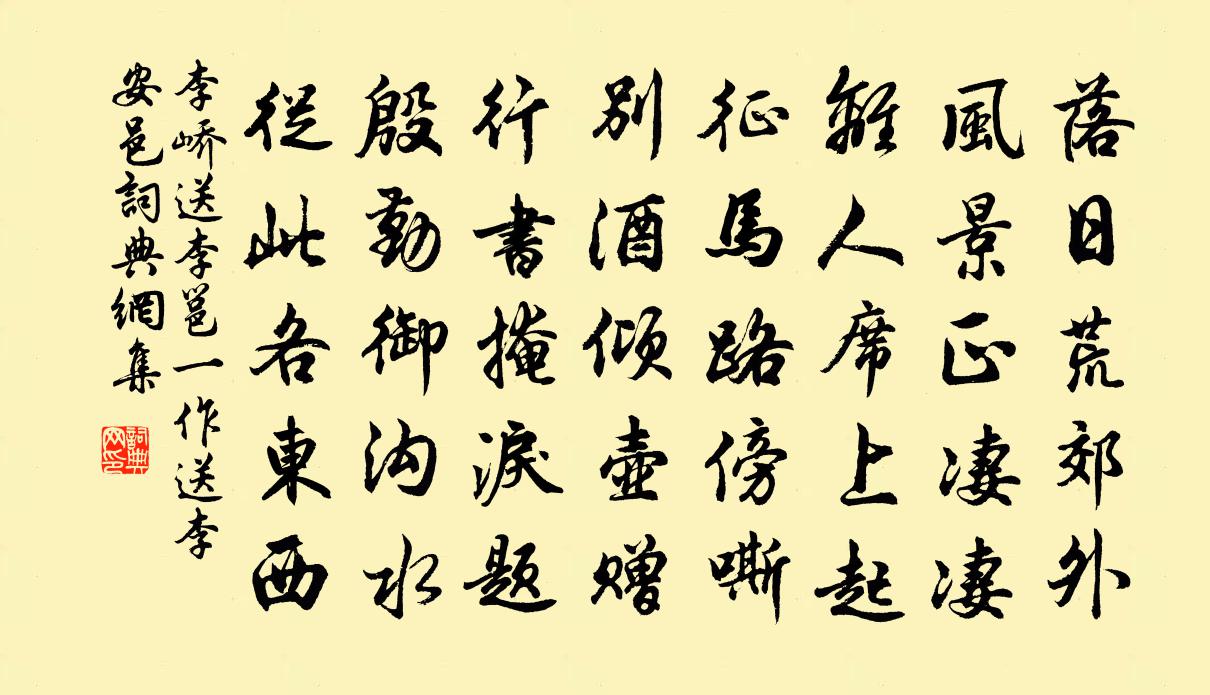 落日荒郊外
風景正凄凄
離人席上起
征馬路傍嘶
別酒傾壺贈
行書掩淚題
殷勤御沟水
從此各東西
李嶠送李邕一作送李
安邑詞典網集
詞典
网印